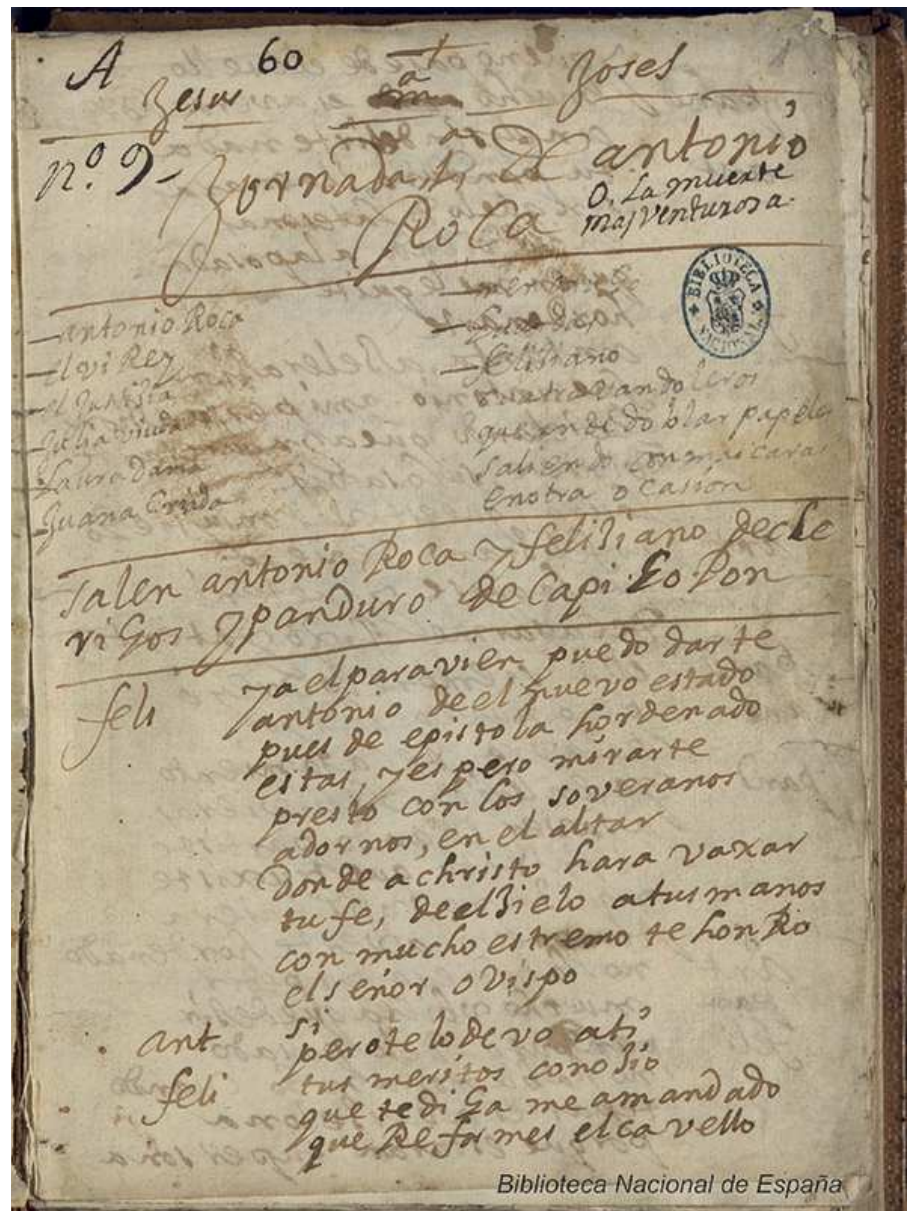 A 60
Jesus m.a Josef
nº. 9-
Jornada 1.a de antonio
Roca
O. La muerte
mas Venturosa.
BIBLIOTECA NACIONAL
-antonio Roca
-el vi Rey
-el Jurista
-Julia viuda
-Laura Dama
-Juana Criada
-feliziano
-quatro vandoleros
que an de doblar papeles
saliendo con mascaras
en otra ocassion
salen antonio Roca y feliziano de cle
rigos y panduro de Capigoron
feli ya el paravien puedo darte
antonio de el nuevo estado
pues de epistola hordenado
estas, y espero mirarte
presto con los soveranos
adornos, en el altar
donde a christo hara vaxar
tu fe, de el zielo a tus manos
con mucho estremo te honRo
el señor ovispo
ant. si
pero te lo devo a ti
feli tus meritos conozio
que te diga me a mandado
que Reformes el cavello
Biblioteca Nacional de España